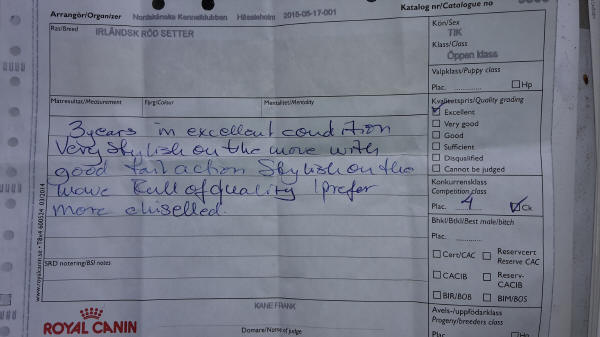 Arrangör/Organizer Nordskånska Kennelklubben Hässleholm 2015-05-17-001 Katalog nr/Catalogue no
Ras/Breed IRLÄNDSK RÖD SETTER
Kön/Sex
TIK
Klass/Class
Öppen klass
Valpklass/Puppy class
Plac. Hp
Mätresultat/Measurement Färg/Colour Mentalitet/Mentality
Kvalitetspris/Quality grading
Excellent
Very good
Good
Sufficient
Disqualified
Cannot be judged
3 years in excellent condition
Very Stylish on the move with
good tail action Stylish on the
move Full of quality I prefer
more chiselled.
Konkurrensklass
Competition class
Plac. 4 Ck
Bhkl/Btkl/Best male/bitch
Plac. ............
Cert/CAC Reservcert
Reserve CAC
CACIB Reserv-
CACIB
BIR/BOB BIM/BOS
Avels-/uppfödarklass
Progeny/breeders class
Hp
SRD notering/BSI notes
www.royalcanin.se
KANE FRANK
Domare/Name of judge
ROYAL CANIN